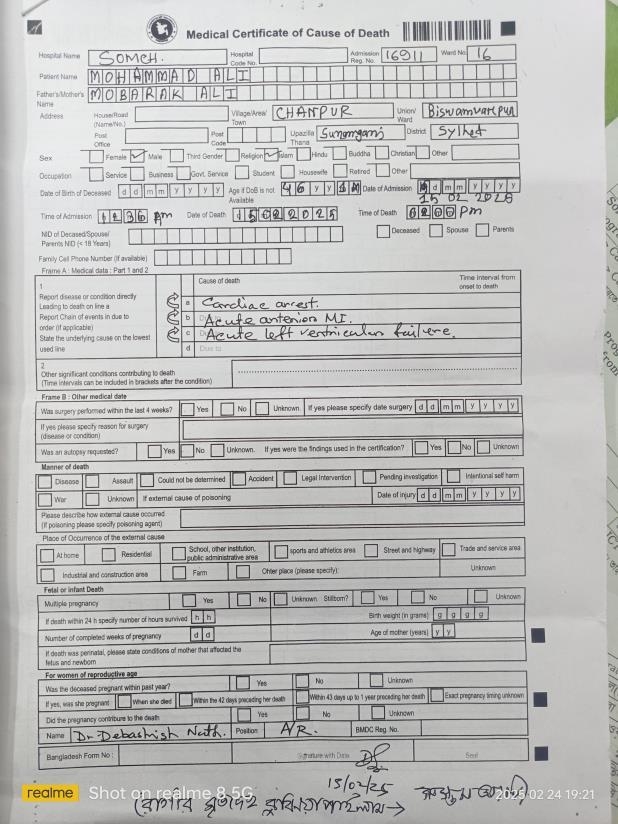 Medical Certificate of Cause of Death
Hospital Name SOMCH. Hospital Code No. Admission Reg. No. 16911 Ward No. 16
Patient Name MOHAMMAD ALI
Father's/Mother's Name MOBARAK ALI
Address House/Road (Name/No.) Village/Area/ Town CHANPUR Union/ Ward
Post Office Post Code Upazilla Thana Sunamganj District Sylhet
Sex Female Male Third Gender Religion Islam Hindu Buddha Christian Other
Occupation Service Business Govt. Service Student Housewife Retired Other
Date of Birth of Deceased d d m m y y y y Age if DoB is not Available 46 y y Date of Admission d m m y y y y
15 02 2025
Time of Admission 1236 pm Date of Death 15022025 Time of Death 0200 pm
NID of Deceased/Spouse/ Parents NID (< 18 Years) Deceased Spouse Parents
Family Cell Phone Number (If available)
Frame A : Medical data : Part 1 and 2
1 Cause of death Time interval from onset to death
Report disease or condition directly Leading to death on line a
a Cardiac arrest.
Report Chain of events in due to order (if applicable)
b Acute anterior MI.
State the underlying cause on the lowest used line
c Acute left ventricular failure.
d Due to
2
Other significant conditions contributing to death
(Time intervals can be included in brackets after the condition)
Frame B : Other medical date
Was surgery performed within the last 4 weeks? Yes No Unknown If yes please specify date surgery d d m m y y y y
If yes please specify reason for surgery (disease or condition)
Was an autopsy requested? Yes No Unknown. If yes were the findings used in the certification? Yes No Unknown
Manner of death
Disease Assault Could not be determined Accident Legal Intervention Pending investigation Intentional self harm
War Unknown If external cause of poisoning Date of injury d d m m y y y y
Please describe how external cause occurred
(If poisoning please specify poisoning agent)
Place of Occurrence of the external cause
At home Residential School, other institution, public administrative area sports and athletics area Street and highway Trade and service area
Industrial and construction area Farm Ohter place (please specify): Unknown
Fetal or infant Death
Multiple pregnancy Yes No Unknown Stillborn? Yes No Unknown
If death within 24 h specify number of hours survived h h Birth weight (in grams) g g g g
Number of completed weeks of pregnancy d d Age of mother (years) y y
If death was perinatal, please state conditions of mother that affected the fetus and newborn
For women of reproductive age
Was the deceased pregnant within past year? Yes No Unknown
If yes, was she pregnant When she died Within the 42 days preceding her death Within 43 days up to 1 year preceding her death Exact pregnancy timing unknown
Did the pregnancy contribute to the death Yes No Unknown
Name Dr. Debashish Nath. Position A/R. BMDC Reg. No.
Bangladesh Form No : Signature with Date Seal
15/02/25
realme Shot on realme 8 5G 2025 02 24 19:21